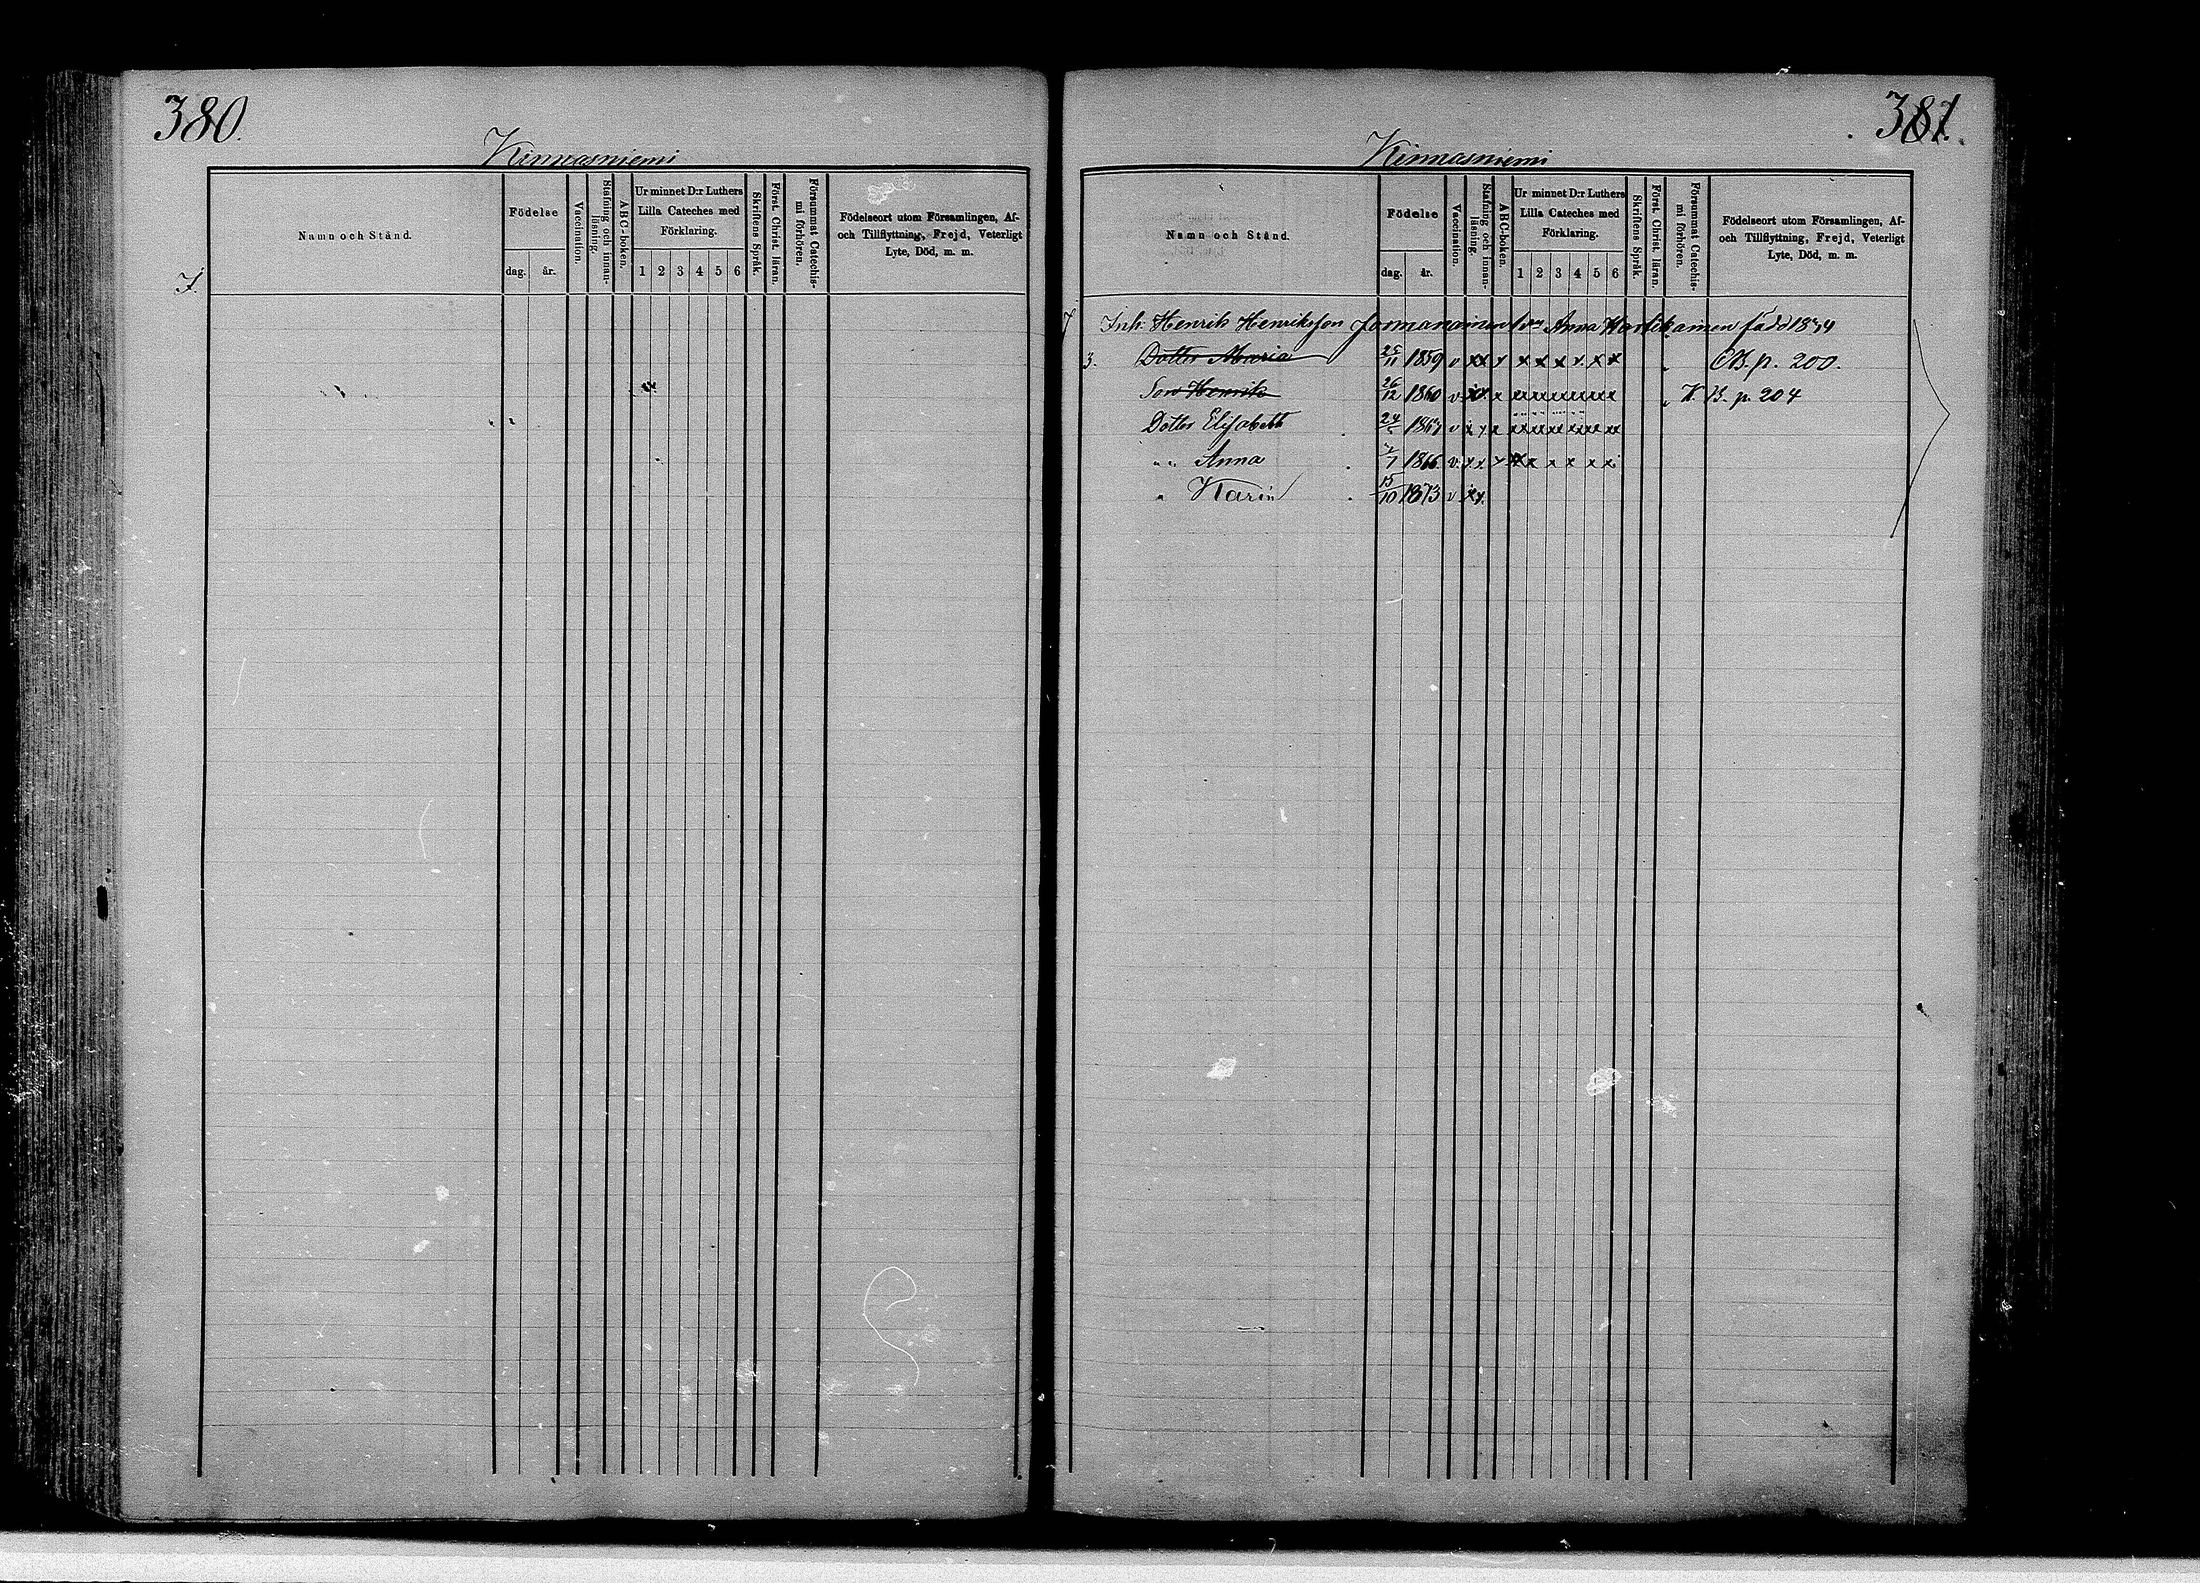 380.
Kinnasniemi
Namn och Stånd.
Födelse
dag.
år.
Vaccination.
Stafning och innan-läsning.
ABC-boken.
Ur minnet D:r Luthers
Lilla Cateches med
Förklaring.
1 2 3 4 5 6
Skriftens Språk.
Först. Christ. läran.
Försummat Catechis-mi förhören.
Födelseort utom Församlingen, Af-
och Tillflyttning, Frejd, Veterligt
Lyte, Död, m. m.
381.
Kinnasniemi
Namn och Stånd.
Födelse
dag.
år.
Vaccination.
Stafning och innan-läsning.
ABC-boken.
Ur minnet D:r Luthers
Lilla Cateches med
Förklaring.
1 2 3 4 5 6
Skriftens Språk.
Först. Christ. läran.
Försummat Catechis-mi förhören.
Födelseort utom Församlingen, Af-
och Tillflyttning, Frejd, Veterligt
Lyte, Död, m. m.
Inh. Henrik Henriksson Jormanainen Anna född
3. Dotter Maria 25/11 1859 v xx x x x x x x x K.B. p. 200.
Son Henrik 26/12 1860 v K.B. p. 204
Dotter Elisabeth v
" " Anna 1866 v x x x x x x x
" Karin 15/10 1873 v xx